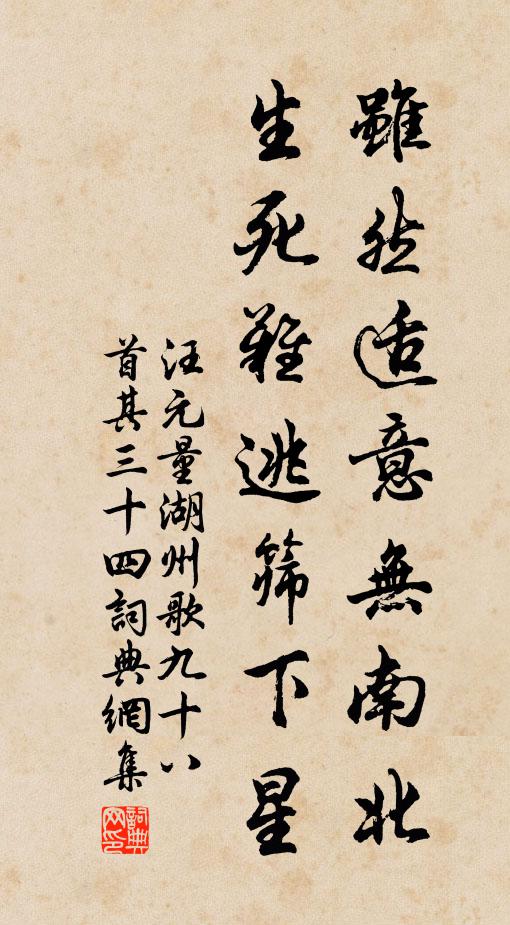 雖然适意無南北
生死難逃筛下星
汪元量湖州歌九十八
首其三十四詞典網集
詞典
网印